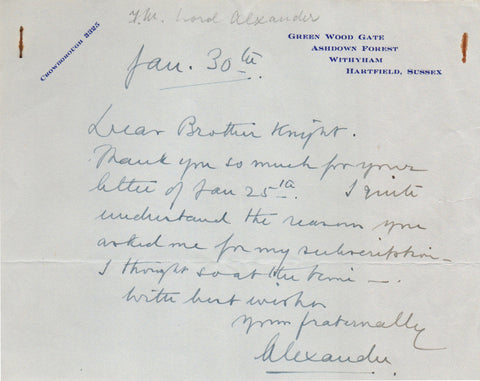 F.M. Lord Alexander
Crowborough 3325
Green Wood Gate
Ashdown Forest
Withyham
Hartfield, Sussex
Jan. 30th.
Dear Brother Knight.
Thank you so much for your
letter of Jan 25th. I quite
understand the reason you
asked me for my subscription –
I thought so at the time –.
With best wishes
yours fraternally
Alexander.